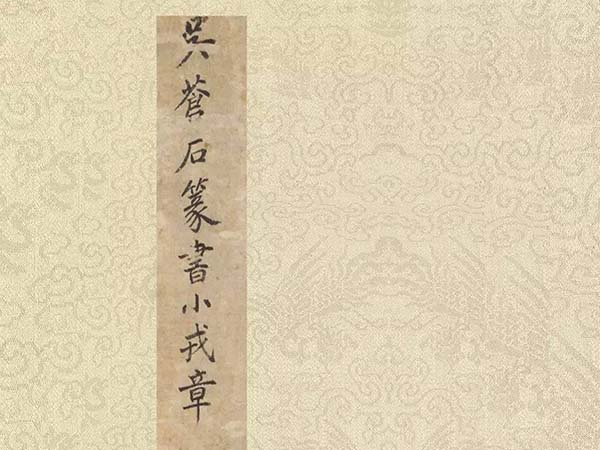 吳蒼石篆書小戎章